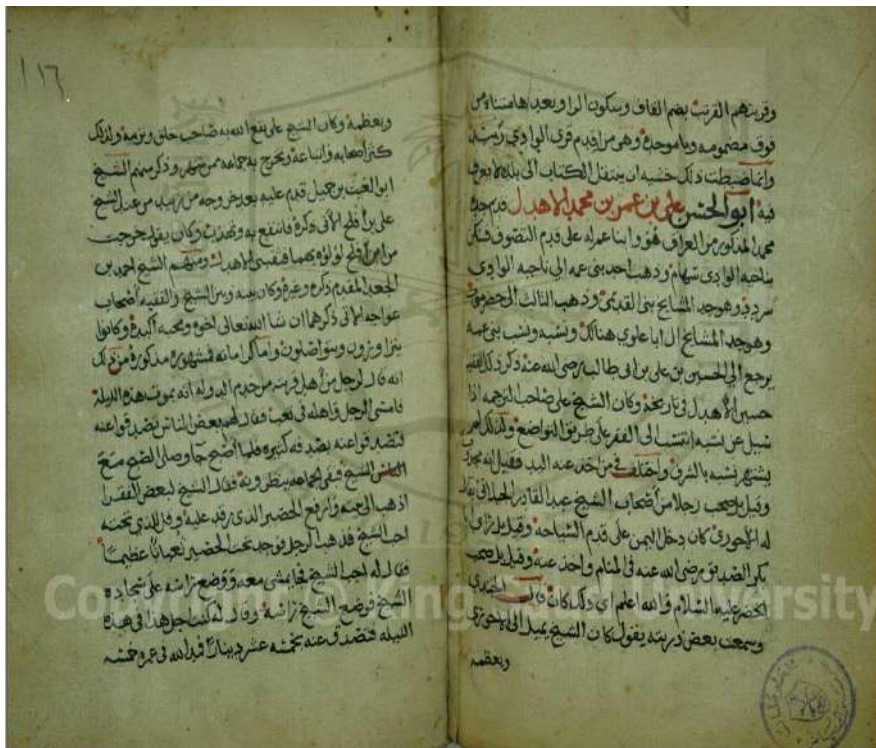 وقريتهم القرتب بضم القاف وسكون الراء وبعدها مثناة من
فوق مضمومة وباء موحدة وهي من اقدم قرى الوادي
وانما ضبطت ذلك خشية ان ينتقل الكتاب الى بلد لا يعرف
فيه ابو الحسن علي بن عمر بن محمد الاهدل قدم جده
محمد المذكور من العراق هو وابنا عم له على قدم التصوف فسكن
بناحية الوادي سهام وذهب احد بني عمه الى ناحية الوادي
سردد وهو جد المشايخ بني القديمي وذهب الثالث الى حضرموت
وهو جد المشايخ ال ابا علوي هنالك ونسبه ونسب بني عمه
يرجع الى الحسين بن علي بن ابي طالب رضي الله عنه ذكر ذلك الفقيه
حسين الاهدل في تاريخه وكان الشيخ علي صاحب الترجمة اذا
سيل عن نسبه انتسب الى الفقر على طريق التواضع ولذلك لم
يشتهر نسبه بالشرف واختلف في من اخذ عنه اليد فقيل انه مجذوب
وقيل بل صحب رجلا من اصحاب الشيخ عبد القادر الجيلاني يقال
له الاحوري كان دخل اليمن على قدم السياحة وقيل بل راى ابا
بكر الصديق رضي الله عنه في المنام واخذ عنه وقيل بل صحب
الخضر عليه السلام والله اعلم اي ذلك كان قال الجندي
وسمعت بعض ذريته يقول كان الشيخ يميل الى
ويعظمه
١١٦
ويعظمه وكان الشيخ علي نفع الله به صاحب خلق وتربية ولذلك
كثر اصحابه واتباعه وتخرج به جماعة ممن شهر وذكر منهم الشيخ
ابو الغيث بن جميل قدم عليه بعد خروجه من زبيد من عند الشيخ
علي بن افلح الاتي ذكره فانتفع به وتهذب وكان يقول خرجت
من ابن افلح لؤلؤة بهما فثقبني الاهدل ومنهم الشيخ احمد بن
الجعد المقدم ذكره وغيره وكان بينه وبين الشيخ والفقيه اصحاب
عواجه الاتي ذكرهما ان شا الله تعالى اخوة ومحبة اكيدة وكانوا
يتزاورون ويتواصلون واما كراماته فشهورة مذكورة من ذلك
انه قال لرجل من اهل قريته من خدم الدولة انه يموت هذه الليلة
فامسى الرجل واهله في تعب فقال لهم بعض الناس تصدقوا عنه
فتصدقوا عنه بصدقه كثيرة فلما اصبح جا وصلى الصبح مع
الشيخ فبقي الجماعة ينظرونه فقال الشيخ لبعض الفقرا
اذهب الى بيته وارفع الحصير الذي رقد عليه وقل للذي تحته
اجب الشيخ فذهب الرجل فوجد تحت الحصير ثعبانا عظيما
فقال له اجب الشيخ فجا يمشي معه ووضع راسه على سجادة
الشيخ فوضع الشيخ راسه وقال له كنت اجل هذا في هذه
الليلة فتصدق عنه بخمسة عشر دينارا فمد الله في عمره خمسة
Copyright © King Saud University